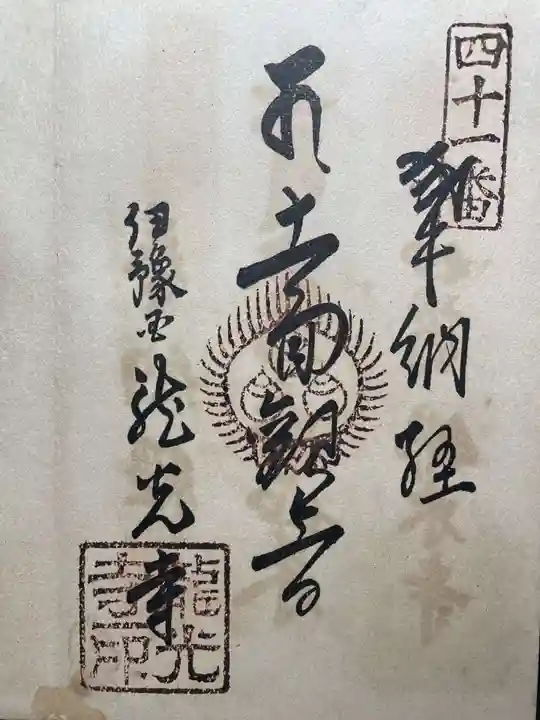 四十一番
奉納経
十一面観音
伊豫国 龍光寺
龍光寺印